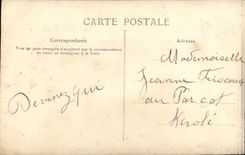 CARTE POSTALE
Correspondance
Tous les pays étrangers n'acceptent pas la correspondance
au recto, se renseigner à la Poste
Adresse
Devinez qui
Mademoiselle
Jeanne
au Parcot